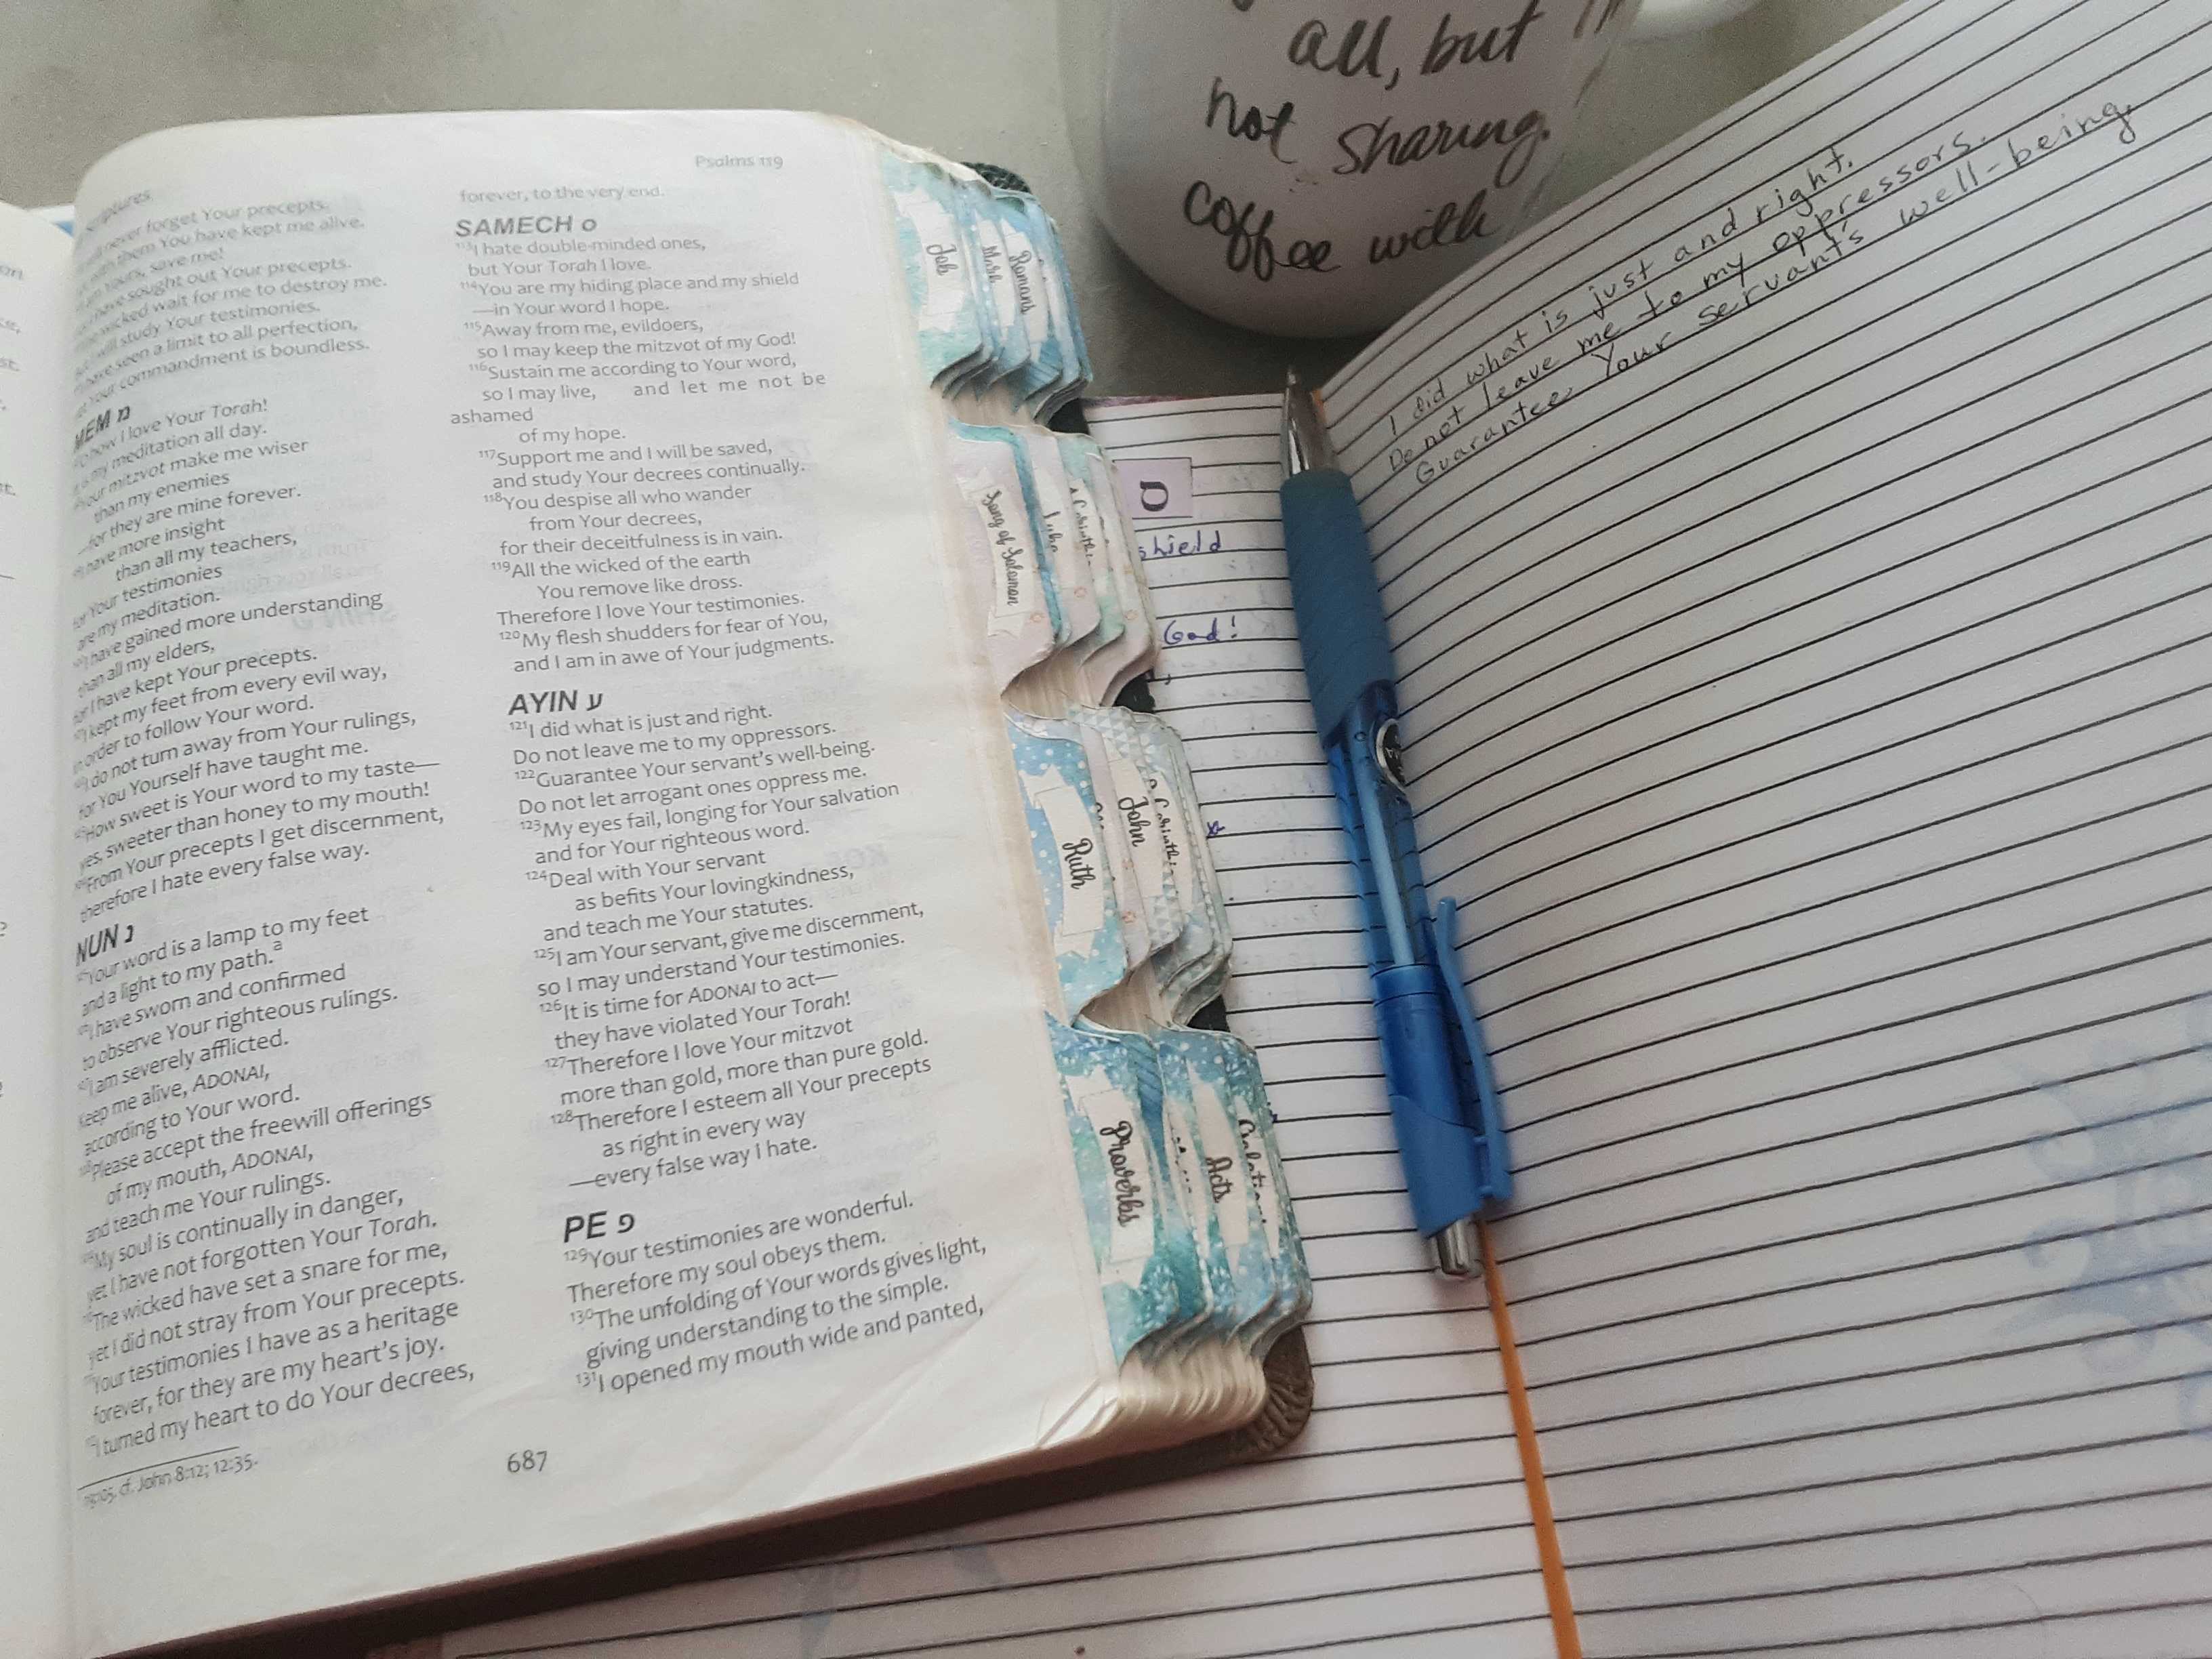 Psalms 119
scriptures
never forget Your precepts.
with them You have kept me alive.
Yours, save me!
have sought out Your precepts.
wicked wait for me to destroy me.
will study Your testimonies.
have seen a limit to all perfection,
Your commandment is boundless.
MEM מ
how I love Your Torah!
my meditation all day.
Your mitzvot make me wiser
than my enemies
—for they are mine forever.
have more insight
than all my teachers,
for Your testimonies
are my meditation.
have gained more understanding
than all my elders,
for I have kept Your precepts.
kept my feet from every evil way,
in order to follow Your word.
I do not turn away from Your rulings,
for You Yourself have taught me.
How sweet is Your word to my taste—
yes, sweeter than honey to my mouth!
From Your precepts I get discernment,
therefore I hate every false way.
NUN נ
Your word is a lamp to my feet
and a light to my path.a
I have sworn and confirmed
to observe Your righteous rulings.
I am severely afflicted.
Keep me alive, ADONAI,
according to Your word.
Please accept the freewill offerings
of my mouth, ADONAI,
and teach me Your rulings.
My soul is continually in danger,
yet I have not forgotten Your Torah.
The wicked have set a snare for me,
yet I did not stray from Your precepts.
Your testimonies I have as a heritage
forever, for they are my heart's joy.
I turned my heart to do Your decrees,
cf. John 8:12; 12:35.
forever, to the very end.
SAMECH ס
113I hate double-minded ones,
but Your Torah I love.
114You are my hiding place and my shield
—in Your word I hope.
115Away from me, evildoers,
so I may keep the mitzvot of my God!
116Sustain me according to Your word,
so I may live, and let me not be
ashamed
of my hope.
117Support me and I will be saved,
and study Your decrees continually.
118You despise all who wander
from Your decrees,
for their deceitfulness is in vain.
119All the wicked of the earth
You remove like dross.
Therefore I love Your testimonies.
120My flesh shudders for fear of You,
and I am in awe of Your judgments.
AYIN ע
121I did what is just and right.
Do not leave me to my oppressors.
122Guarantee Your servant's well-being.
Do not let arrogant ones oppress me.
123My eyes fail, longing for Your salvation
and for Your righteous word.
124Deal with Your servant
as befits Your lovingkindness,
and teach me Your statutes.
125I am Your servant, give me discernment,
so I may understand Your testimonies.
126It is time for ADONAI to act—
they have violated Your Torah!
127Therefore I love Your mitzvot
more than gold, more than pure gold.
128Therefore I esteem all Your precepts
as right in every way
—every false way I hate.
PE פ
129Your testimonies are wonderful.
Therefore my soul obeys them.
130The unfolding of Your words gives light,
giving understanding to the simple.
131I opened my mouth wide and panted,
687
Job
Mark
Romans
Song of Solomon
Luke
Ruth
John
Proverbs
Acts
ס
shield
God!
all, but
not sharing
coffee with
I did what is just and right.
Do not leave me to my oppressors.
Guarantee Your servant's well-being.